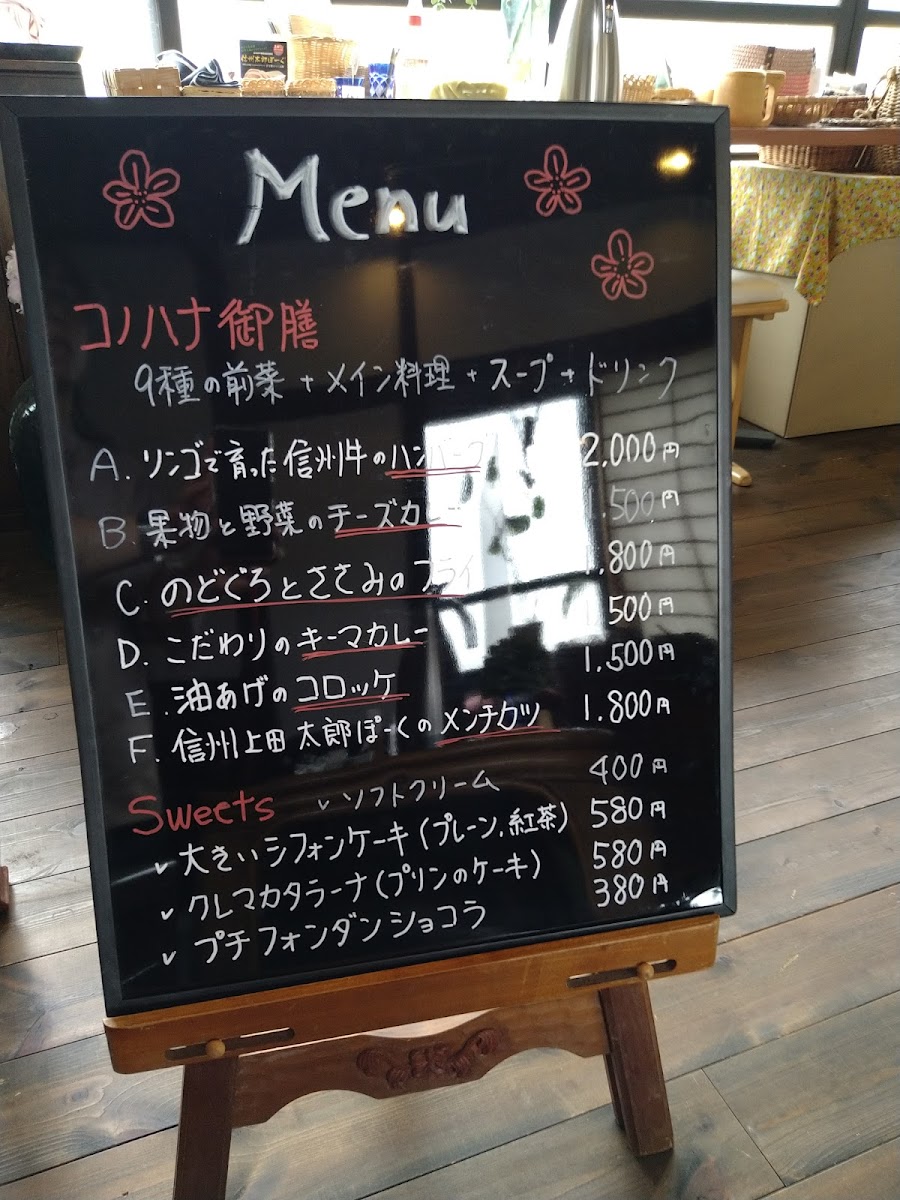 Menu
コノハナ御膳
9種の前菜 + メイン料理 + スープ + ドリンク
A. リンゴで育った信州牛のハンバーグ 2,000円
B. 果物と野菜のチーズカレー 500円
C. のどぐろとささみのフライ 1.800円
D. こだわりのキーマカレー 500円
E. 油あげのコロッケ 1.500円
F. 信州上田 太郎ぽーくのメンチカツ 1.800円
Sweets ✓ソフトクリーム 400円
✓ 大きいシフォンケーキ(プレーン.紅茶) 580円
✓ クレマカタラーナ(プリンのケーキ) 580円
✓ プチフォンダンショコラ 380円